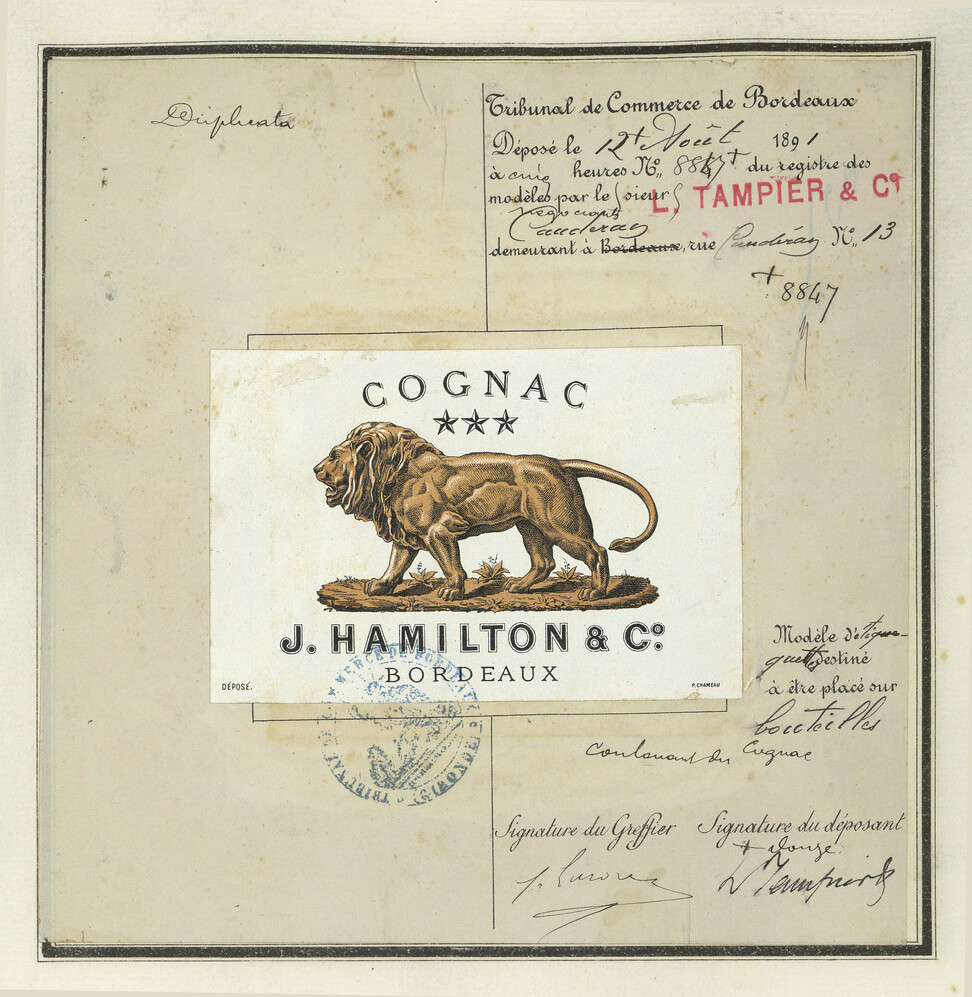 Duplicata
Tribunal de Commerce de Bordeaux
Déposé le 12+ Août 1891
à cinq heures N° 8847+ du registre des
modèles par le sieur L. TAMPIER & Co
négociants
Caudéran
demeurant à Bordeaux, rue Caudéran N° 13
+ 8847
COGNAC
J. HAMILTON & Co.
BORDEAUX
DÉPOSÉ.
P. CHAMEAU
Modèle d'étique-
quette destiné
à être placé sur
bouteilles
contenant du Cognac
TRIBUNAL DE COMMERCE DE BORDEAUX GIRONDE
Signature du Greffier
Signature du déposant
+ douze
L Tampier & Co